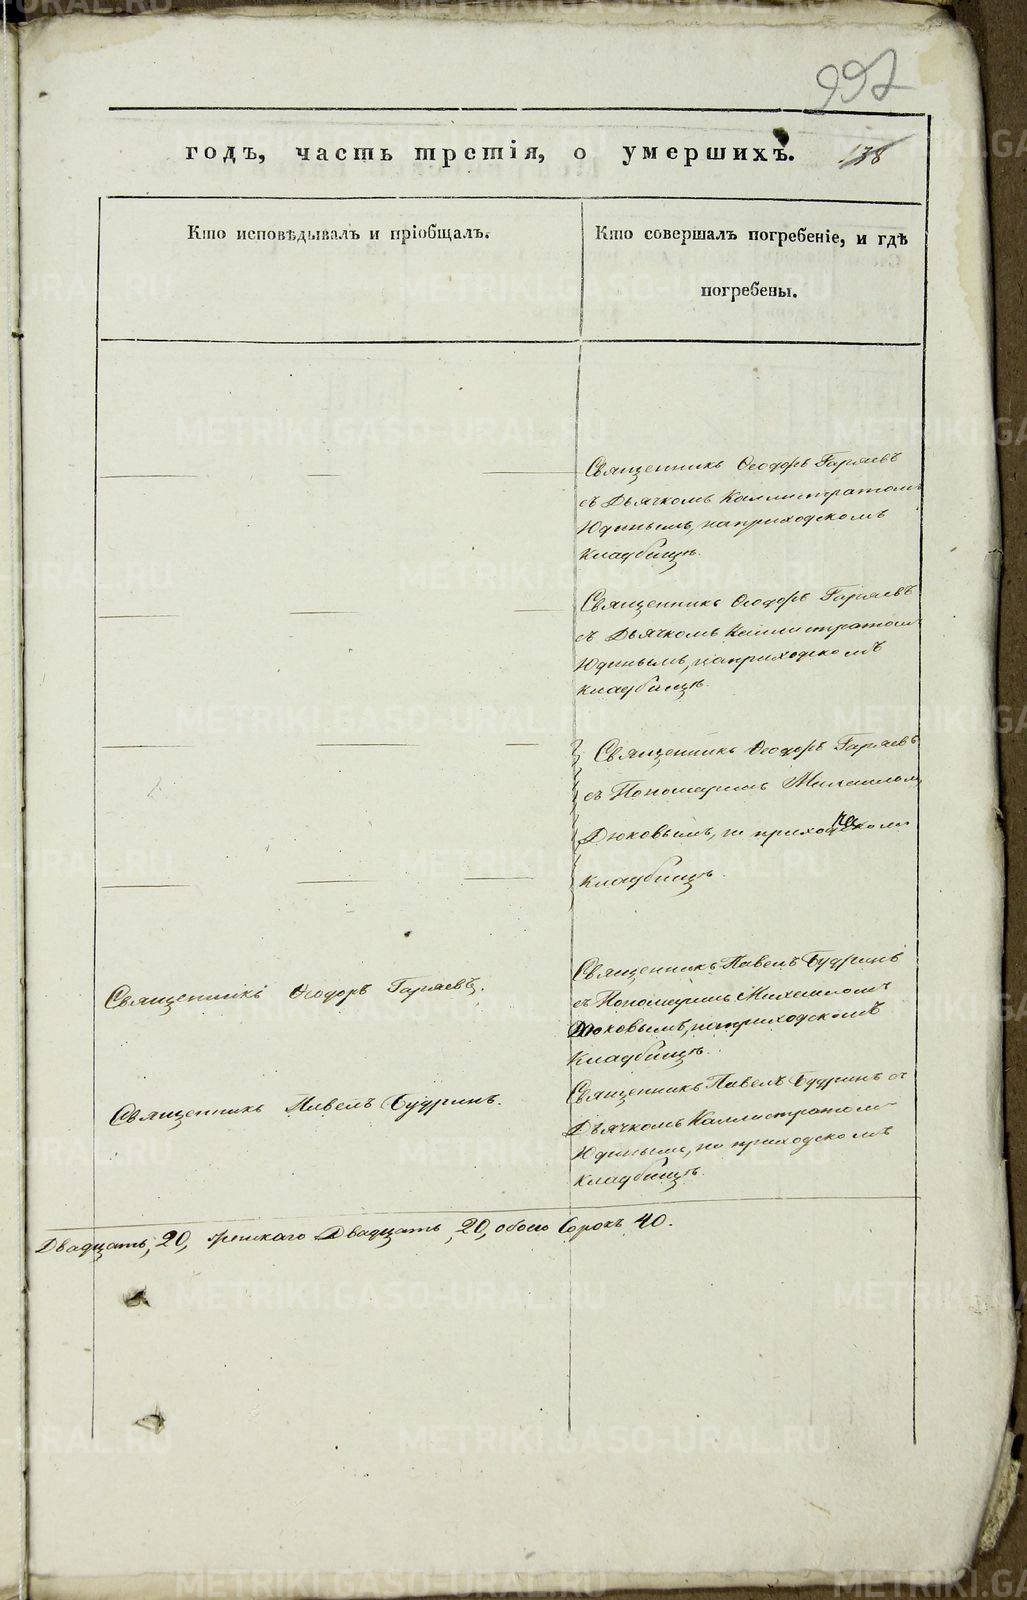 992
годъ, часть третія, о умершихъ. 138
Кто исповѣдывалъ и пріобщалъ.
Кто совершалъ погребеніе, и гдѣ
погребены.
Священникъ Ѳеодоръ Гаряевъ
съ Дьячкомъ Каллистратомъ
Юдинымъ, на приходскомъ
кладбищѣ.
Священникъ Ѳеодоръ Гаряевъ
съ Дьячкомъ Каллистратомъ
Юдинымъ, на приходскомъ
кладбищѣ.
Священникъ Ѳеодоръ Гаряевъ
съ Пономаремъ Михаиломъ
Дюковымъ, на приходскомъ
кладбищѣ.
Священникъ Ѳеодоръ Гаряевъ.
Священникъ Павелъ Будринъ
съ Пономаремъ Михаиломъ
Дюковымъ, на приходскомъ
кладбищѣ.
Священникъ Павелъ Будринъ.
Священникъ Павелъ Будринъ съ
Дьячкомъ Каллистратомъ
Юдинымъ, на приходскомъ
кладбищѣ.
Двадцать, 20, женскаго Двадцать, 20, обоего Сорокъ 40.
METRIKI.GASO-URAL.RU